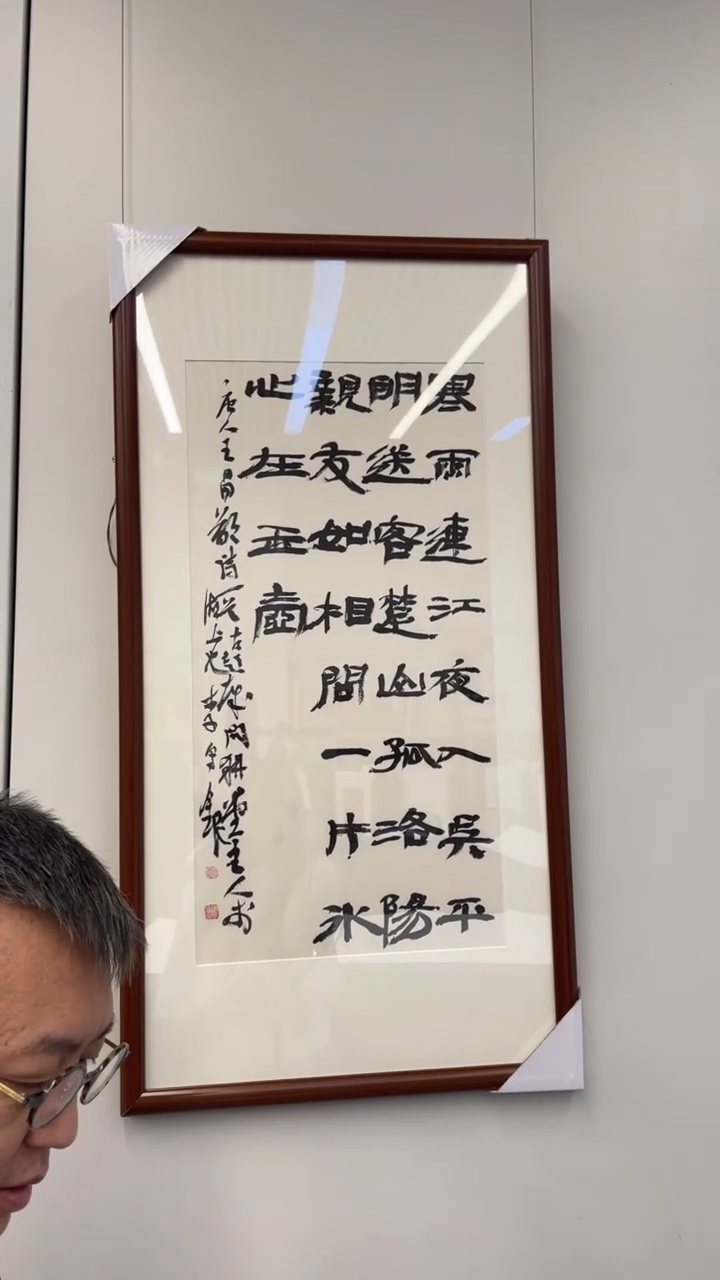 寒雨連江夜入吳平
明送客楚山孤洛陽
親友如相問一片冰
心在玉壺
唐人王昌齡詩
主人書